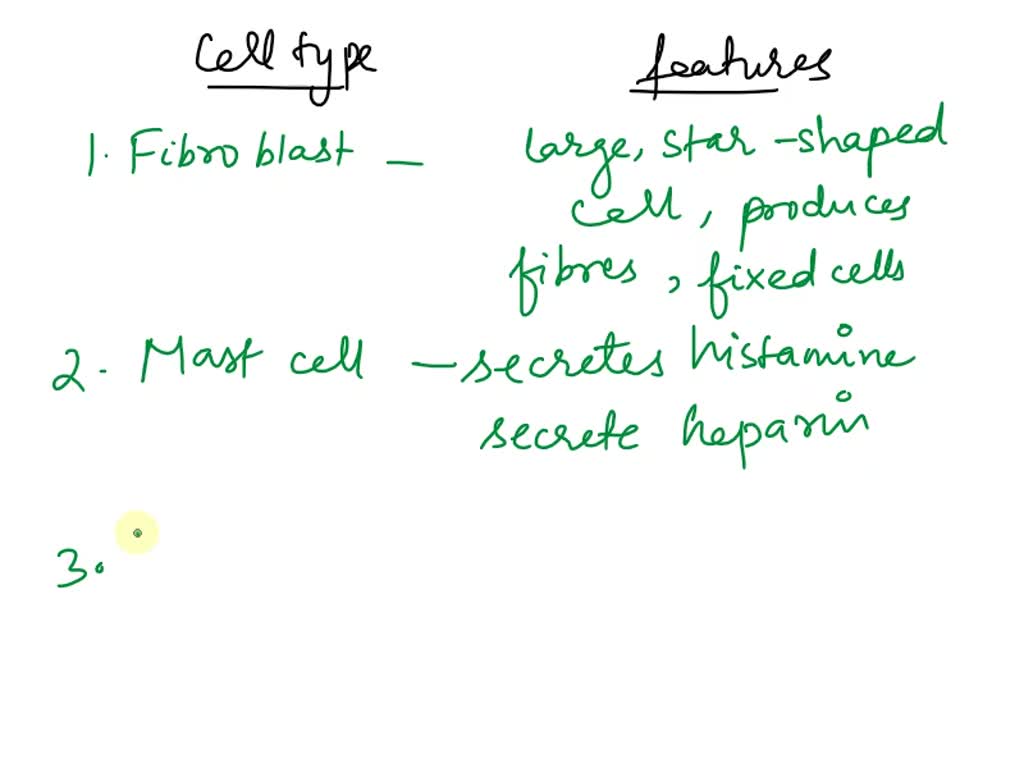 Cell type features
1. Fibroblast — large, star-shaped
cell, produces
fibres, fixed cells
2. Mast cell — secretes histamine
secrete heparin
3.